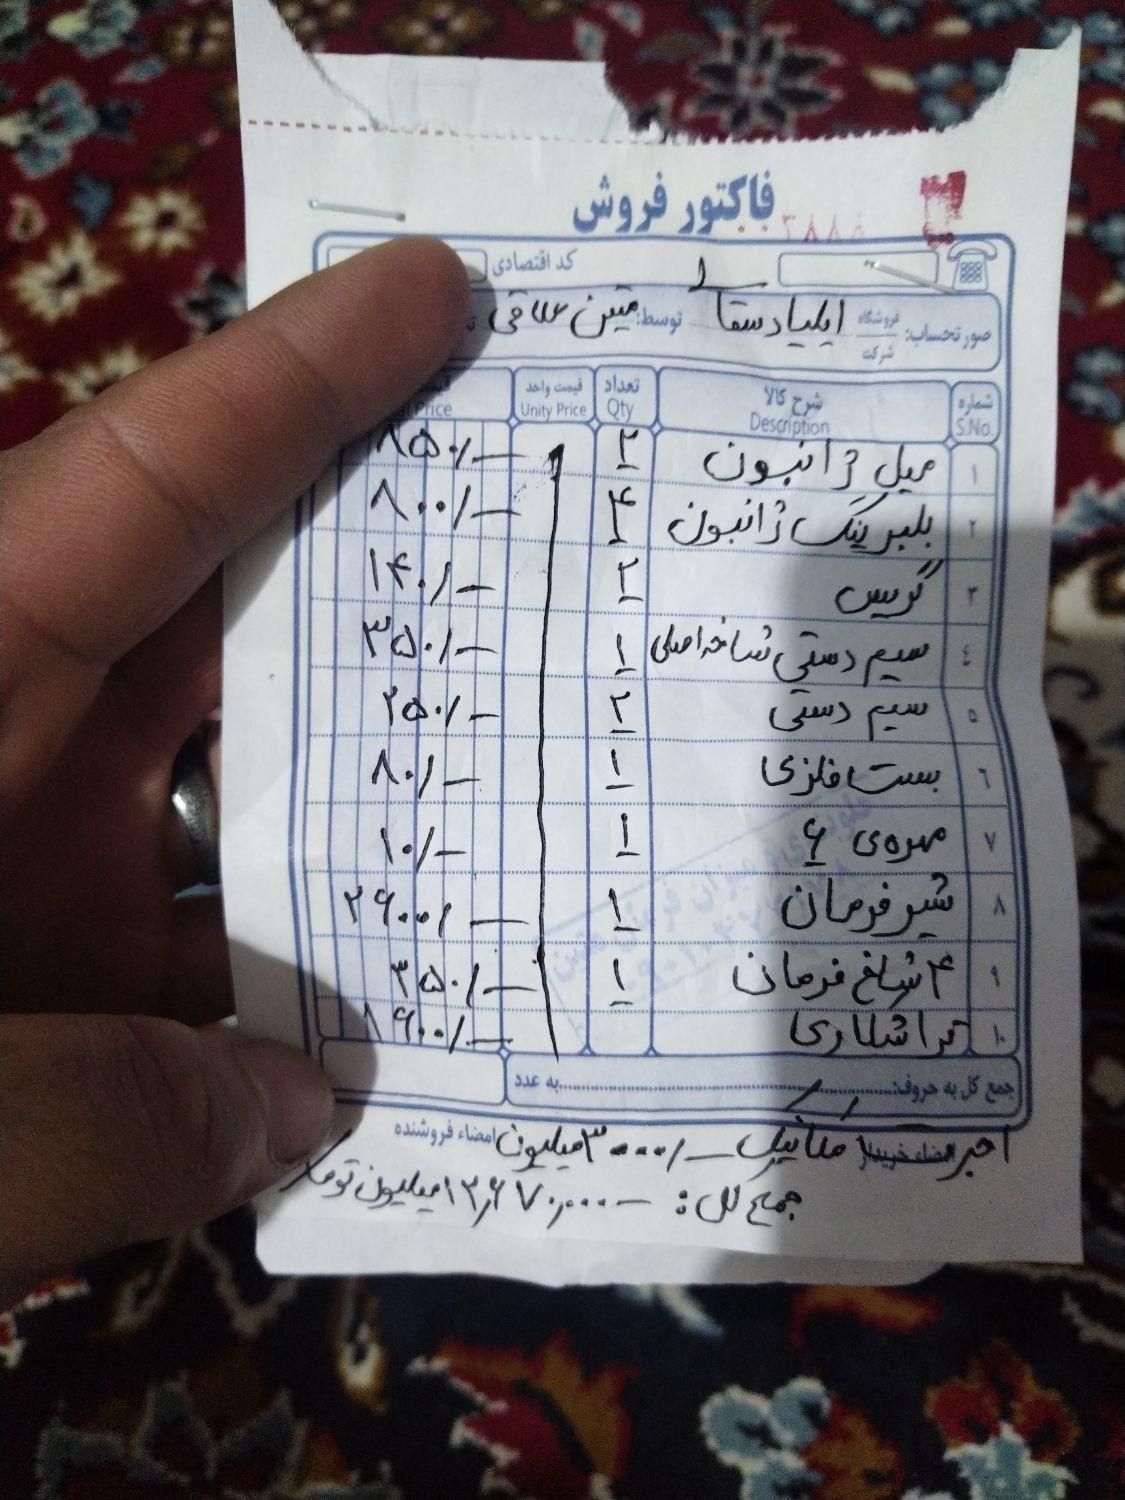 فاکتور فروش
کد اقتصادی
صورتحساب: فروشگاه شرکت ایلیا دسقا توسط: متین
شماره S.No. شرح کالا Description تعداد Qty قیمت واحد Unity Price Price
۱ میل ژانبون ۲ ۸۵۰/-
۲ بلبرینگ ژانبون ۴ ۸۰۰/-
۳ گریس ۲ ۱۴۰/-
۴ سیم دستی شاخه اصلی ۱ ۳۵۰/-
۵ سیم دستی ۲ ۲۵۰/-
۶ بست فلزی ۱ ۸۰/-
۷ مهره‌ی ۶ ۱ ۱۰/-
۸ شیر فرمان ۱ ۲۶۰۰/-
۹ ۴ شاخ فرمان ۱ ۳۵۰/-
۱۰ تراشکاری ۶۰۰/-
جمع کل به حروف: به عدد
امضاء خریدار امضاء فروشنده
اجرت مکانیک ۳۰۰۰/- میلیون
جمع کل: ۱۳,۶۷۰,۰۰۰ میلیون تومان